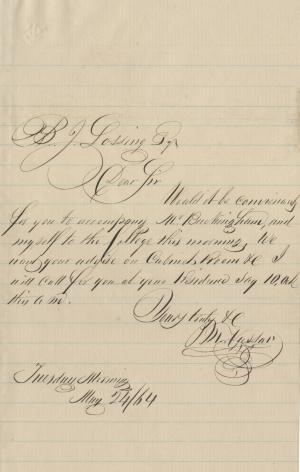 B. J. Lossing Esqr
Dear Sir
Would it be convenient
for you to accompany Mr Buckingham, and
myself to the College this morning, We
want your advise on Cabinet Room &c I
will call for you at your Residence say 10, O,Clk
this A.M.
Yours truly &c
M. Vassar
Tuesday Morning
May 24/64